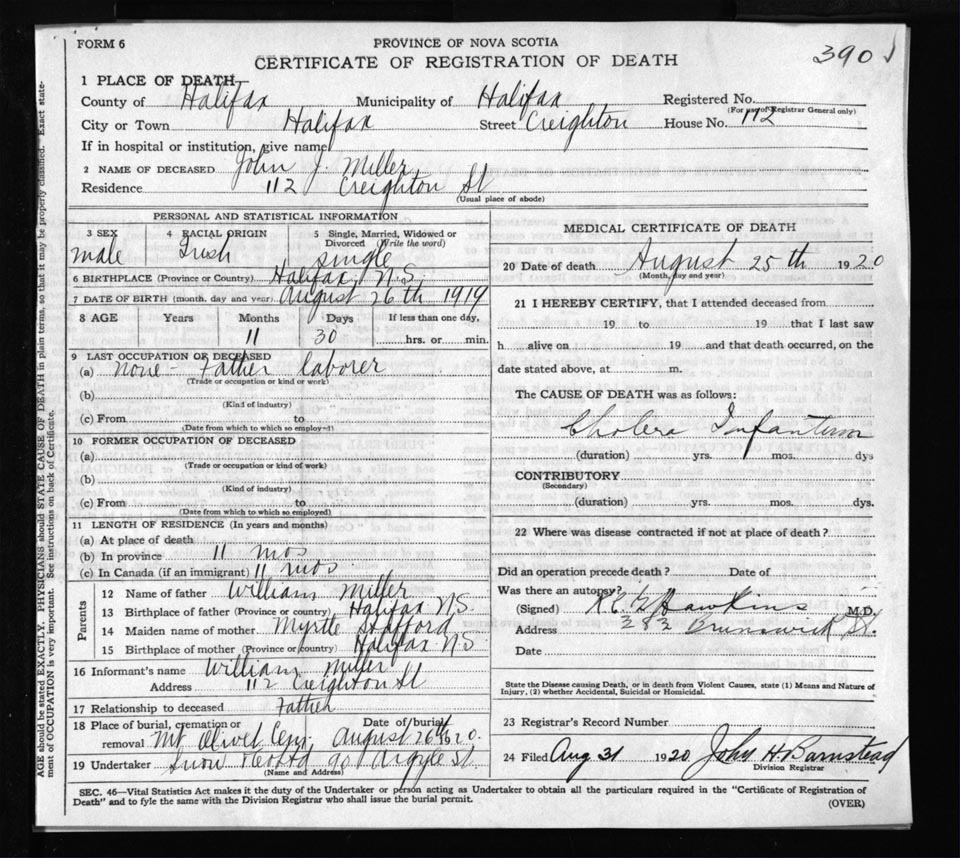 FORM 6
PROVINCE OF NOVA SCOTIA
CERTIFICATE OF REGISTRATION OF DEATH
390
1 PLACE OF DEATH—
County of Halifax Municipality of Halifax Registered No.
(For use of Registrar General only)
City or Town Halifax Street Creighton House No. 112
If in hospital or institution, give name
2 NAME OF DECEASED John J. Miller
Residence 112 Creighton St
(Usual place of abode)
PERSONAL AND STATISTICAL INFORMATION
3 SEX 4 RACIAL ORIGIN 5 Single, Married, Widowed or Divorced (Write the word)
male Irish Single
6 BIRTHPLACE (Province or Country) Halifax, N.S.
7 DATE OF BIRTH (month, day and year) August 26th 1919
8 AGE Years Months Days If less than one day,
11 30 hrs. or min.
9 LAST OCCUPATION OF DECEASED
(a) none - Father laborer
(Trade or occupation or kind or work)
(b)
(Kind of industry)
(c) From to
(Date from which to which so employed)
10 FORMER OCCUPATION OF DECEASED
(a)
(Trade or occupation or kind of work)
(b)
(Kind of industry)
(c) From to
(Date from which to which so employed)
11 LENGTH OF RESIDENCE (In years and months)
(a) At place of death
(b) In province 11 mos
(c) In Canada (if an immigrant) 11 mos
Parents
12 Name of father William Miller
13 Birthplace of father (Province or country) Halifax N.S.
14 Maiden name of mother Myrtle Stafford
15 Birthplace of mother (Province or country) Halifax N.S
16 Informant's name William Miller
Address 112 Creighton St
17 Relationship to deceased Father
18 Place of burial, cremation or removal Mt Olivet Cem. Date of burial August 26th 20.
19 Undertaker Snow 90 Argyle St.
(Name and Address)
MEDICAL CERTIFICATE OF DEATH
20 Date of death August 25th 1920
(Month, day and year)
21 I HEREBY CERTIFY, that I attended deceased from
19 to 19 that I last saw
h alive on 19 and that death occurred, on the
date stated above, at m.
The CAUSE OF DEATH was as follows:
Cholera Infantum
(duration) yrs. mos. dys
CONTRIBUTORY
(Secondary)
(duration) yrs. mos. dys.
22 Where was disease contracted if not at place of death?
Did an operation precede death? Date of
Was there an autopsy?
(Signed) Hawkins M.D.
Address 282 Brunswick St.
Date
State the Disease causing Death, or in death from Violent Causes, state (1) Means and Nature of
Injury, (2) whether Accidental, Suicidal or Homicidal.
23 Registrar's Record Number
24 Filed Aug 31 1920 John H. Barnstead
Division Registrar
SEC. 46—Vital Statistics Act makes it duty of the Undertaker or person acting as Undertaker to obtain all the particulars required in the "Certificate of Registration of
Death" and to fyle the same with the Division Registrar who shall issue the burial permit.
(OVER)
AGE should be stated EXACTLY. PHYSICIANS should STATE CAUSE OF DEATH in plain terms, so that it may be properly classified. Exact state-
ment of OCCUPATION is very important. See instructions on back of Certificate.